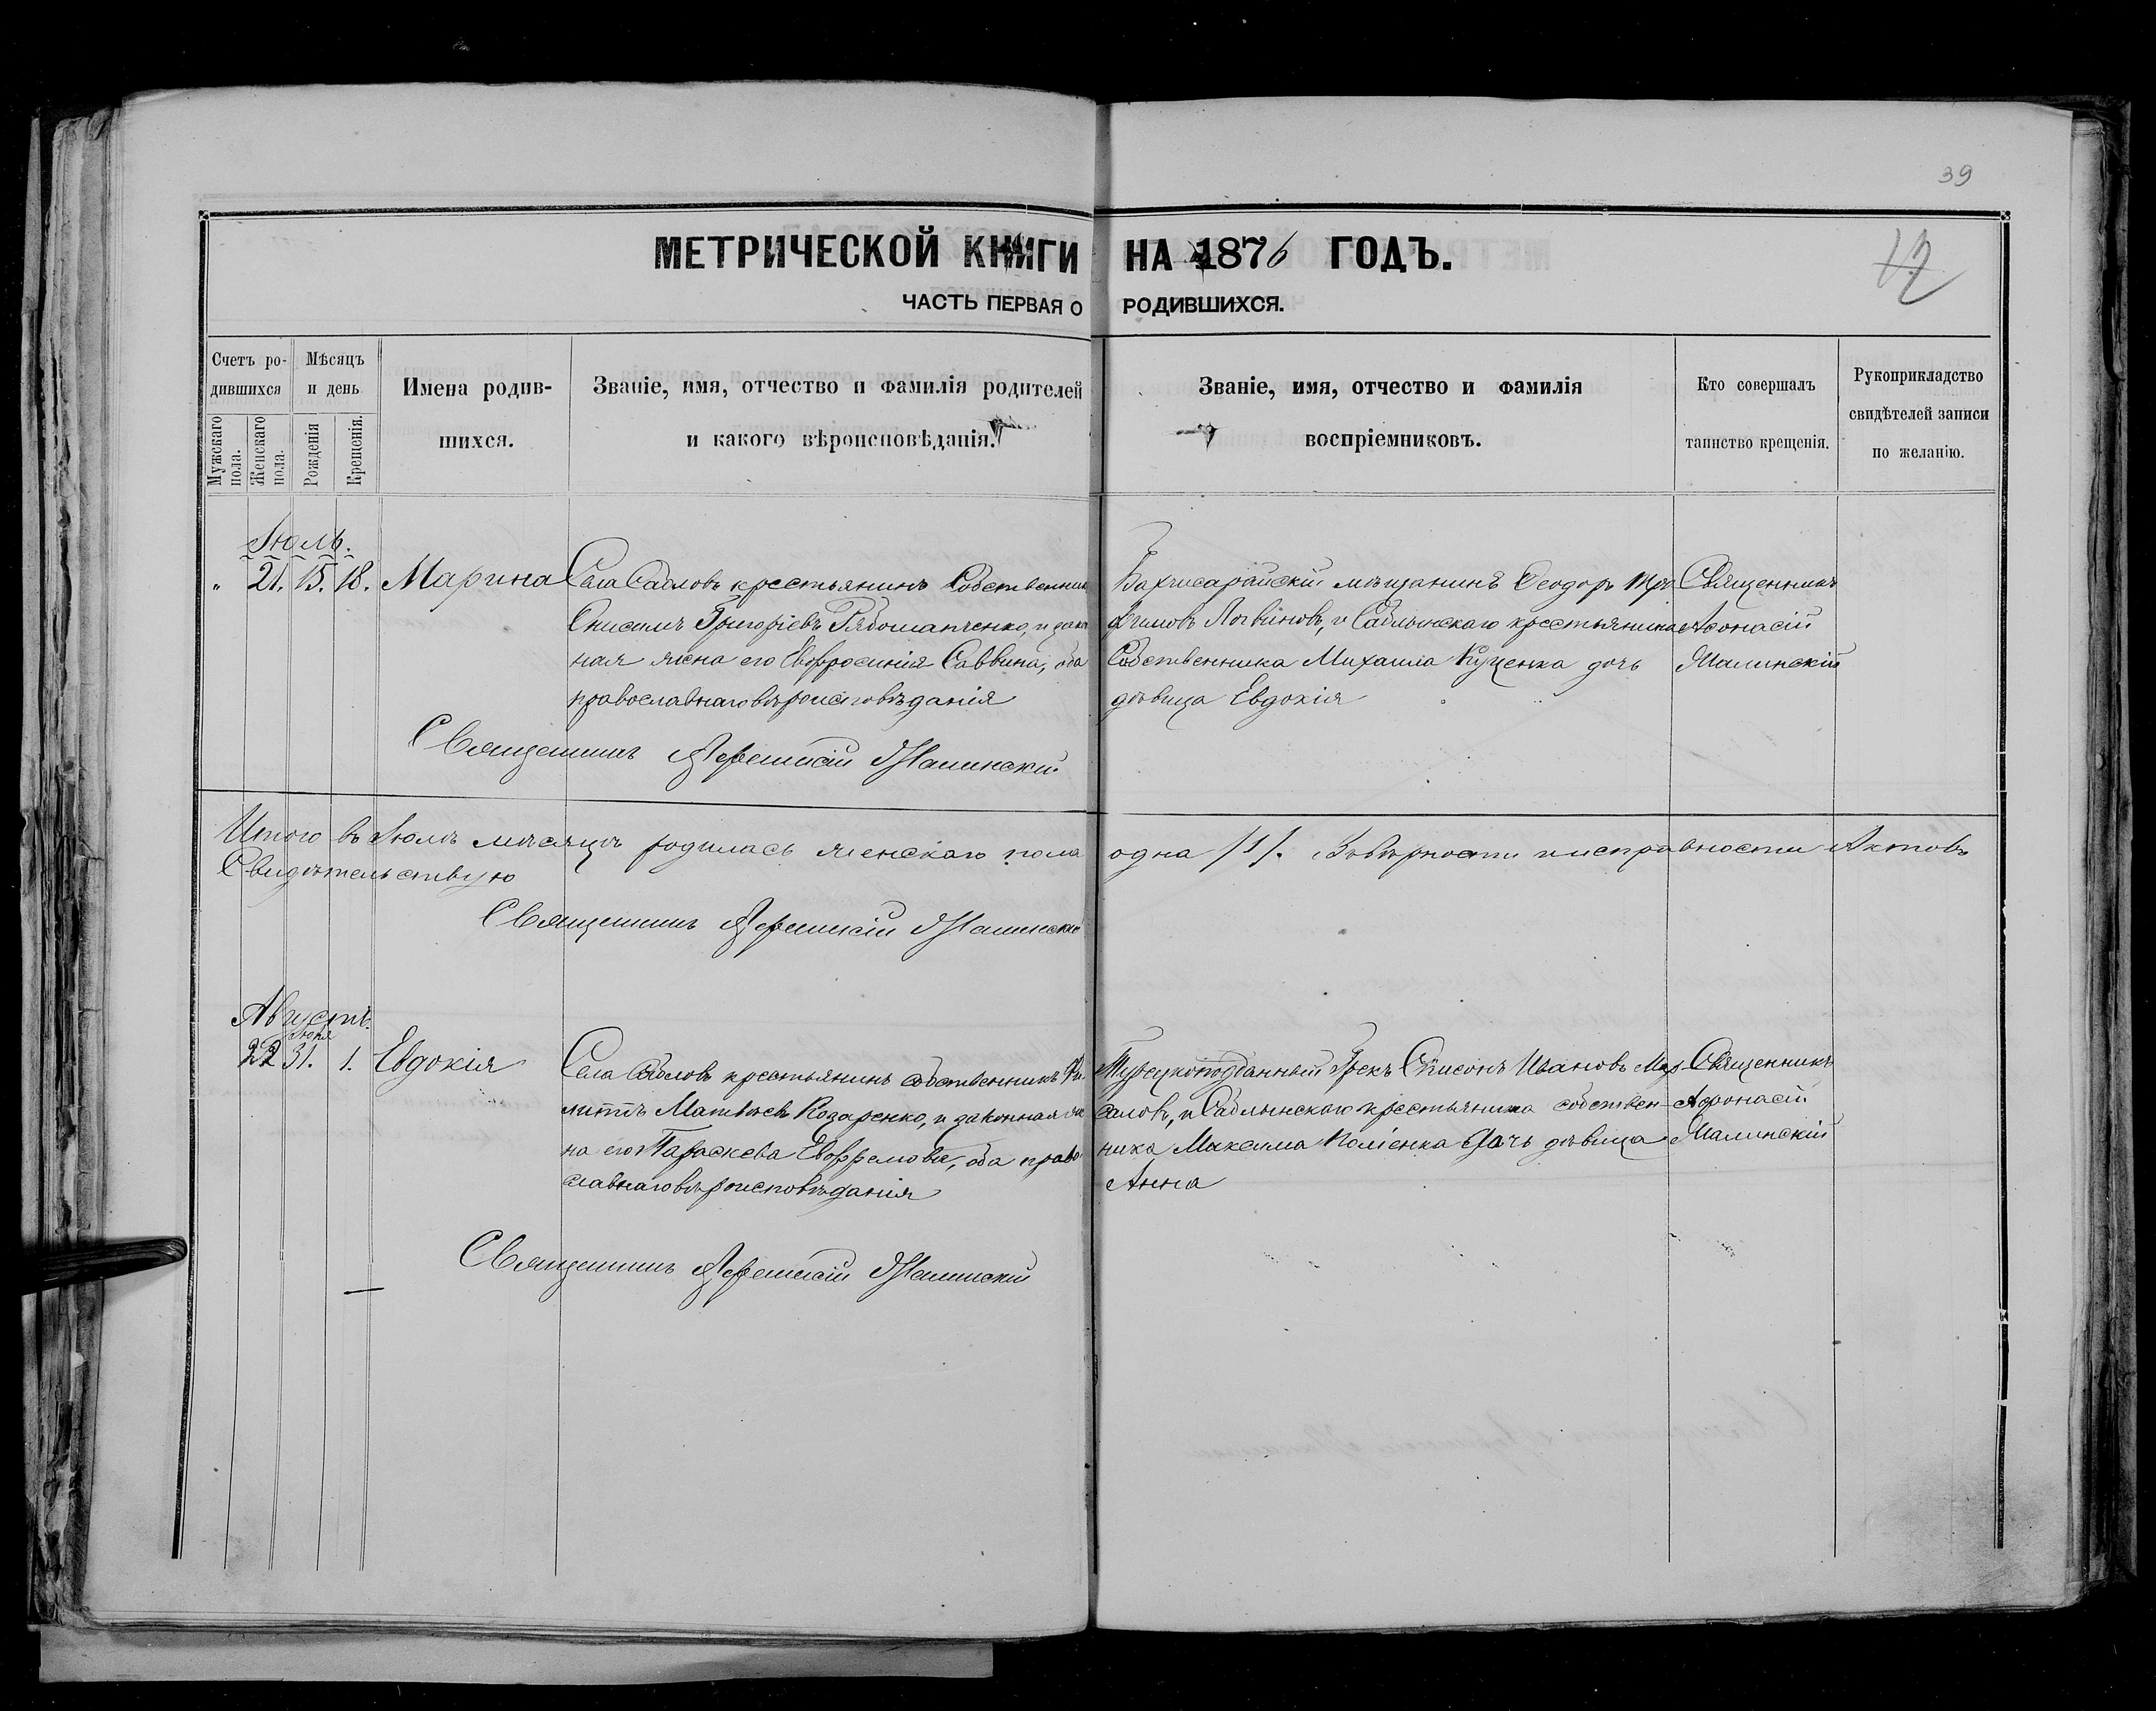 39
МЕТРИЧЕСКОЙ КНИГИ НА 1876 ГОДЪ.
12
ЧАСТЬ ПЕРВАЯ О РОДИВШИХСЯ.
Счетъ родившихся
Мужскаго пола.
Женскаго пола.
Мѣсяцъ и день
Рожденія
Крещенія.
Имена родив-
шихся.
Званіе, имя, отчество и фамилія родителей
и какого вѣроисповѣданія.
Званіе, имя, отчество и фамилія
воспріемниковъ.
Кто совершалъ
таинство крещенія.
Рукоприкладство
свидѣтелей записи
по желанію.
Іюль.
" 21. 15. 18. Марина
Села Сабловъ крестьянинъ Собственникъ
Онисимъ Григоріевъ Рябошапченко, и закон
ная жена его Евфросинія Саввина, оба
православнаго вѣроисповѣданія
Бахчисарайскій мѣщанинъ Ѳеодоръ Тро
фимовъ Логвиновъ, и Саблынскаго крестьянина
Собственника Михаила Куценка дочь
дѣвица Евдокія
Священникъ
Афонасій
Малинскій
Священникъ Афанасій Малинскій
Итого въ Іюлѣ мѣсяцѣ родилась женскаго пола одна /1/. Въ вѣрности и исправности Актовъ
Свидѣтельствую
Священникъ Афанасій Малинскій
Августъ.
22 31. 1. Евдокія
Села Сабловъ крестьянинъ собственникъ Фи-
липпъ Матвѣевъ Козаренко, и законная же
на его Параскева Евфремова, оба право-
славнаго вѣроисповѣданія
Турецкоподданный Грекъ Списонъ Ивановъ Мар-
саловъ, и Саблынскаго крестьянина собствен-
ника Максима Коліенка дочь дѣвица
Анна
Священникъ
Афонасій
Малинскій
Священникъ Афанасій Малинскій